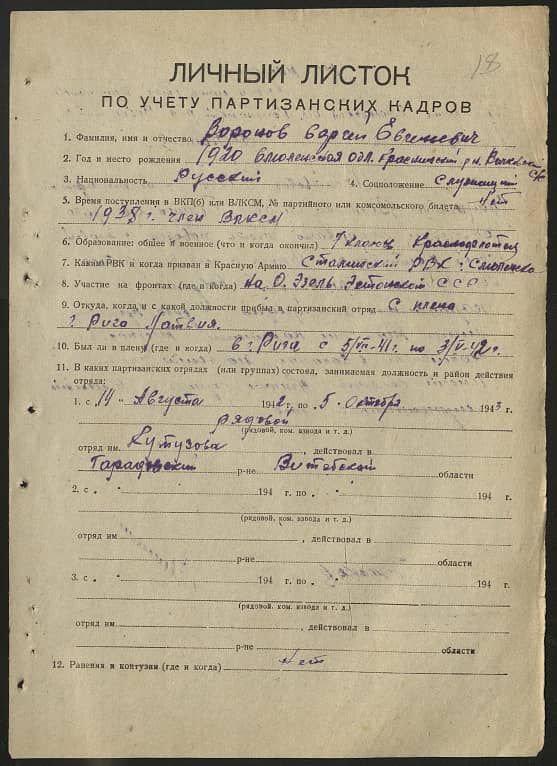 18
ЛИЧНЫЙ ЛИСТОК
ПО УЧЕТУ ПАРТИЗАНСКИХ КАДРОВ
1. Фамилия, имя и отчество Воронов Евгеневич
2. Год и место рождения 1920 Смоленская обл. р-н.
3. Национальность Русский 4. Соцположение Служащий
5. Время поступления в ВКП(б) или ВЛКСМ, № партийного или комсомольского билета нет
1938 г. член ВЛКСМ
6. Образование: общее и военное (что и когда окончил) 7 классов
7. Каким РВК и когда призван в Красную Армию РВК г. Смоленска
8. Участие на фронтах (где и когда) На О. Эзель. Эстонской ССР
9. Откуда, когда и с какой должности прибыл в партизанский отряд С плена
г. Рига Латвия.
10. Был ли в плену (где и когда) в г. Рига с 5/VII-41г. по 3/VI-42г.
11. В каких партизанских отрядах (или группах) состоял, занимаемая должность и район действия
отряда:
1. с 14 " Августа 1942 г. по " 5 - Октября 1943 г.
рядовой
(рядовой, ком. взвода и т. д.)
отряд им. Кутузова , действовал в
р-не Витебской области
2. с " " 194 г. по " " 194 г.
(рядовой, ком. взвода и т. д.)
отряд им. , действовал в
р-не области
3. с " " 194 г. по " " 194 г.
(рядовой, ком. взвода и т. д.)
отряд им. , действовал в
р-не области
12. Ранения и контузии (где и когда) нет